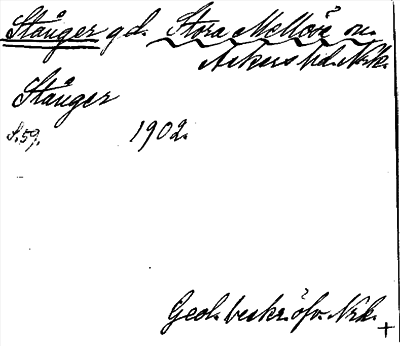 Stånger gd. Stora Mellösa sn.
Askers hd. Nrk.
Stånger
S. 59.  1902.
Geol. beskr. öfv. Nrk.
+